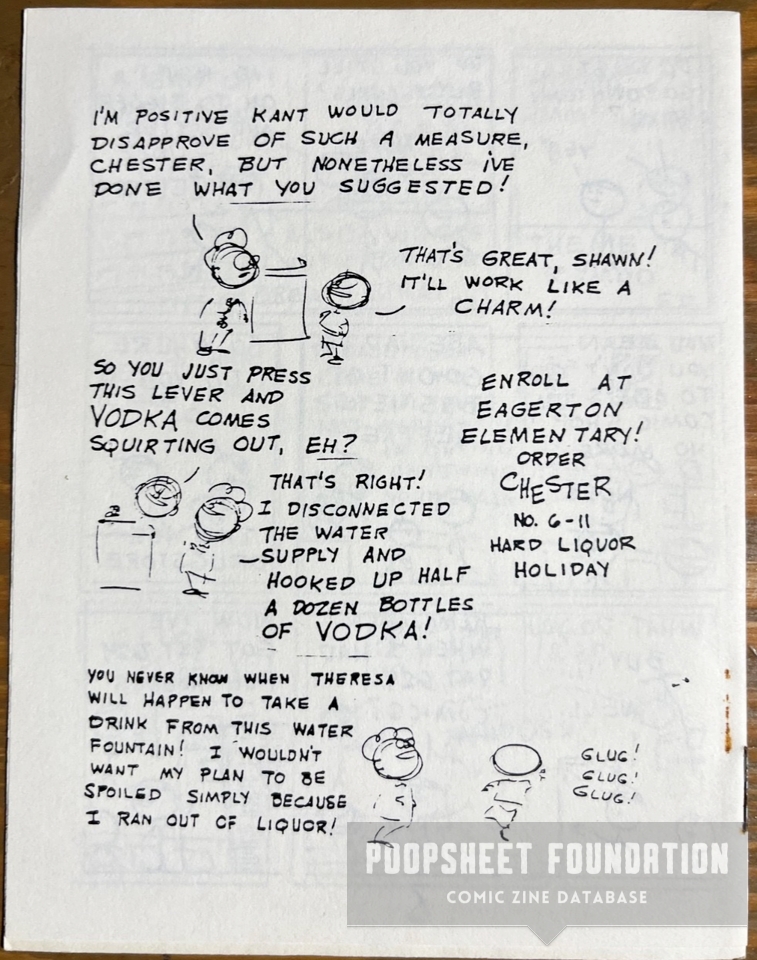 I'M POSITIVE KANT WOULD TOTALLY
DISAPPROVE OF SUCH A MEASURE,
CHESTER, BUT NONETHELESS I'VE
DONE WHAT YOU SUGGESTED!
THAT'S GREAT, SHAWN!
IT'LL WORK LIKE A
CHARM!
SO YOU JUST PRESS
THIS LEVER AND
VODKA COMES
SQUIRTING OUT, EH?
THAT'S RIGHT!
I DISCONNECTED
THE WATER
SUPPLY AND
HOOKED UP HALF
A DOZEN BOTTLES
OF VODKA!
ENROLL AT
EAGERTON
ELEMENTARY!
ORDER
CHESTER
NO. 6-11
HARD LIQUOR
HOLIDAY
YOU NEVER KNOW WHEN THERESA
WILL HAPPEN TO TAKE A
DRINK FROM THIS WATER
FOUNTAIN! I WOULDN'T
WANT MY PLAN TO BE
SPOILED SIMPLY BECAUSE
I RAN OUT OF LIQUOR!
GLUG!
GLUG!
GLUG!
POOPSHEET FOUNDATION
COMIC ZINE DATABASE